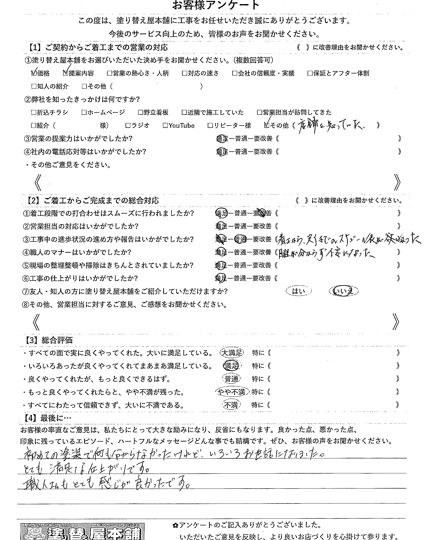 お客様アンケート
この度は、塗り替え屋本舗に工事をお任せいただき誠にありがとうございます。
今後のサービス向上のため、皆様のお声をお聞かせください。
【1】ご契約からご着工までの営業の対応 ( )に改善理由をお聞かせください。
①塗り替え屋本舗をお選びいただいた決め手をお聞かせください。(複数回答可)
☑価格 ☑提案内容 □営業の熱心さ・人柄 □対応の速さ □会社の信頼度・実績 □保証とアフター体制
□知人の紹介 □その他( )
②弊社を知ったきっかけは何ですか?
□折込チラシ □ホームページ □野立看板 □近隣で施工していた □営業担当が訪問してきた
□紹介( 様) □ラジオ □YouTube □リピーター様 ☑その他( 店舗を知っていた )
③営業の提案力はいかがでしたか? 満足ー普通ー要改善( )
④社内の電話応対等はいかがでしたか? 満足ー普通ー要改善( )
・その他ご意見をください。
《 》
【2】ご着工からご完成までの総合対応 ( )に改善理由をお聞かせください。
①着工段階での打合わせはスムーズに行われましたか? 満足ー普通ー要改善( )
②営業担当の対応はいかがでしたか? 満足ー普通ー要改善( )
③工事中の進歩状況の進め方や報告はいかがでしたか? 満足ー普通ー要改善(
④職人のマナーはいかがでしたか? 満足ー普通ー要改善(
⑤現場の整理整頓や掃除はきちんとされていましたか? 満足ー普通ー要改善( )
⑥工事の仕上がりはいかがでしたか? 満足ー普通ー要改善( )
⑦友人・知人の方に塗り替え屋本舗をご紹介していただけますか? はい いいえ
⑧その他、営業担当に対するご意見、ご感想をお聞かせください。
《 》
【3】総合評価
・すべての面で実に良くやってくれた。大いに満足している。 大満足 特に( )
・いろいろあったが良くやってくれてまあまあ満足している。 満足 特に( )
・良くやってくれたが、もっと良くできるはず。 普通 特に( )
・もっと良くやってくれたらと、やや不満が残った。 やや不満 特に( )
・すべてにわたって信頼できず、大いに不満である。 不満 特に( )
【4】最後に…
お客様の率直なご意見は、私たちにとって大きな励みになり、反省にもなります。良かった点、悪かった点、
印象に残っているエピソード、ハートフルなメッセージどんな事でも結構です。ぜひ、お客様の声をお聞かせください。
初めての塗装で何も分らなかったけれど、いろいろお世話になりました。
とても満足な仕上がりです。
職人さんもとても感じが良かったです。
塗り替え屋本舗
✿アンケートのご記入ありがとうございました。
いただいたご意見を反映し、より良いお店づくりを心掛けて参ります。